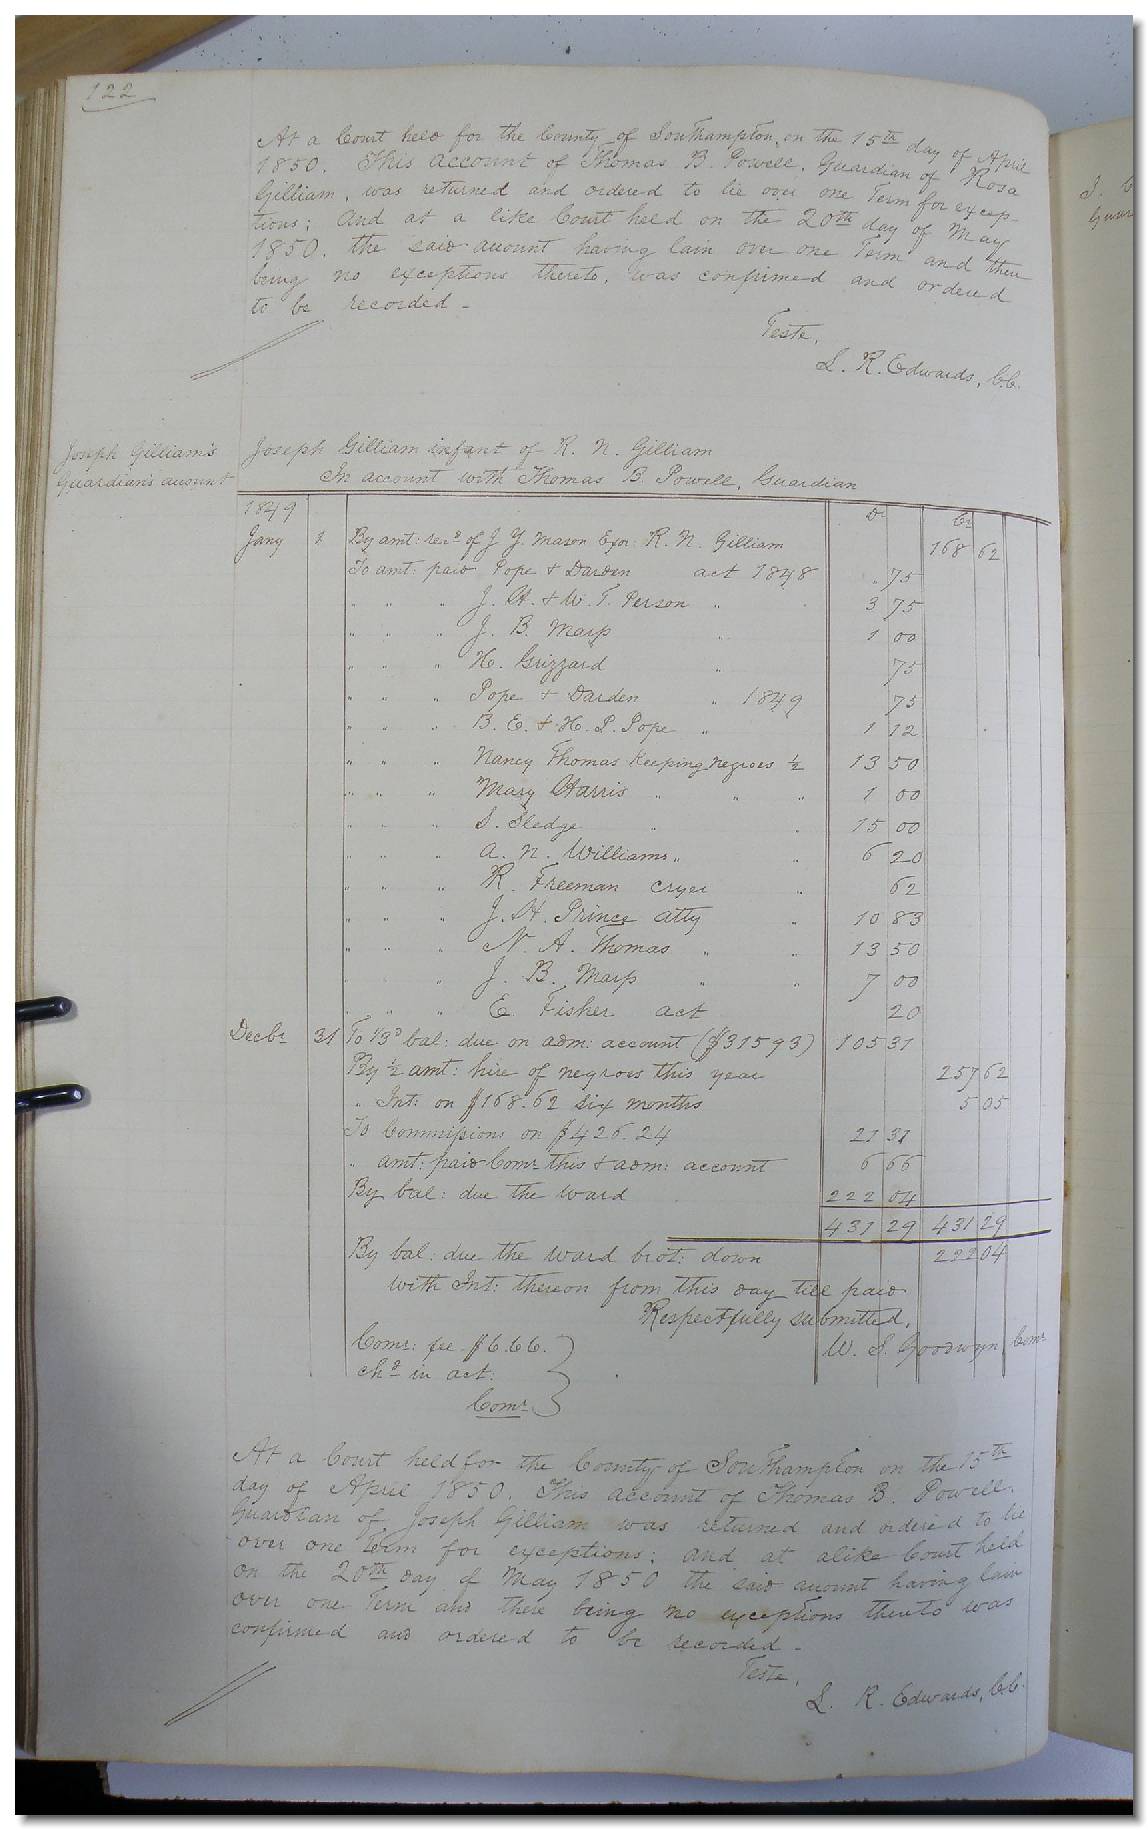 122
At a Court held for the County of Southampton, on the 15th day of April
1850. This account of Thomas B. Powell, Guardian of Rosa
Gilliam, was returned and ordered to lie over one Term for excep-
tions; And at a like Court held on the 20th day of May
1850. the said account having lain over one Term and there
being no exceptions thereto, was confirmed and ordered
to be recorded -
Teste,
L. R. Edwards, C.C.
Joseph Gilliam's
Guardian's account
Joseph Gilliam infant of R. N. Gilliam
In account with Thomas B. Powell, Guardian
1849 Dr Cr
Jany 1 By amt: recd of J. Y. Mason Exor: R. N. Gilliam 168 62
To amt: paid Pope & Darden act 1848 . 75
" " " J. H. & W. T. Person " 3 75
" " " J. B. Marp " 1 00
" " " H. Grizzard " 75
" " " Pope & Darden " 1849 75
" " " B. E. & H. P. Pope " 1 12
" " " Nancy Thomas keeping negroes ½ 13 50
" " " Mary Harris " " " 1 00
" " " S. Sledge " " 15 00
" " " A. N. Williams " " 6 20
" " " R. Freeman cryer " 62
" " " J. H. Prince atty " 10 83
" " " N. A. Thomas " " 13 50
" " " J. B. Marp " " 7 00
" " " E Fisher act 20
Decbr 31 To 1/3d bal: due on adm: account ($315 93) 105 31
By ½ amt: hire of negroes this year 257 62
" Int: on $168.62 six months 5 05
To Commissions on $426.24 21 31
" amt: paid Comr this & adm: account 6 66
By bal: due the ward 222 04
431 29 431 29
By bal: due the ward brot: down 222 04
with Int: thereon from this day till paid
Respectfully submitted,
W. S. Goodwyn Comr
Comr: fee $6.66.
chd in act:
Comr
At a Court held for the County of Southampton on the 15th
day of April 1850. This account of Thomas B. Powell.
Guardian of Joseph Gilliam was returned and ordered to lie
over one Term for exceptions; and at alike Court held
on the 20th day of May 1850 the said account having lain
over one Term and there being no exceptions thereto was
confirmed and ordered to be recorded -
Teste,
L. R. Edwards, C.C.